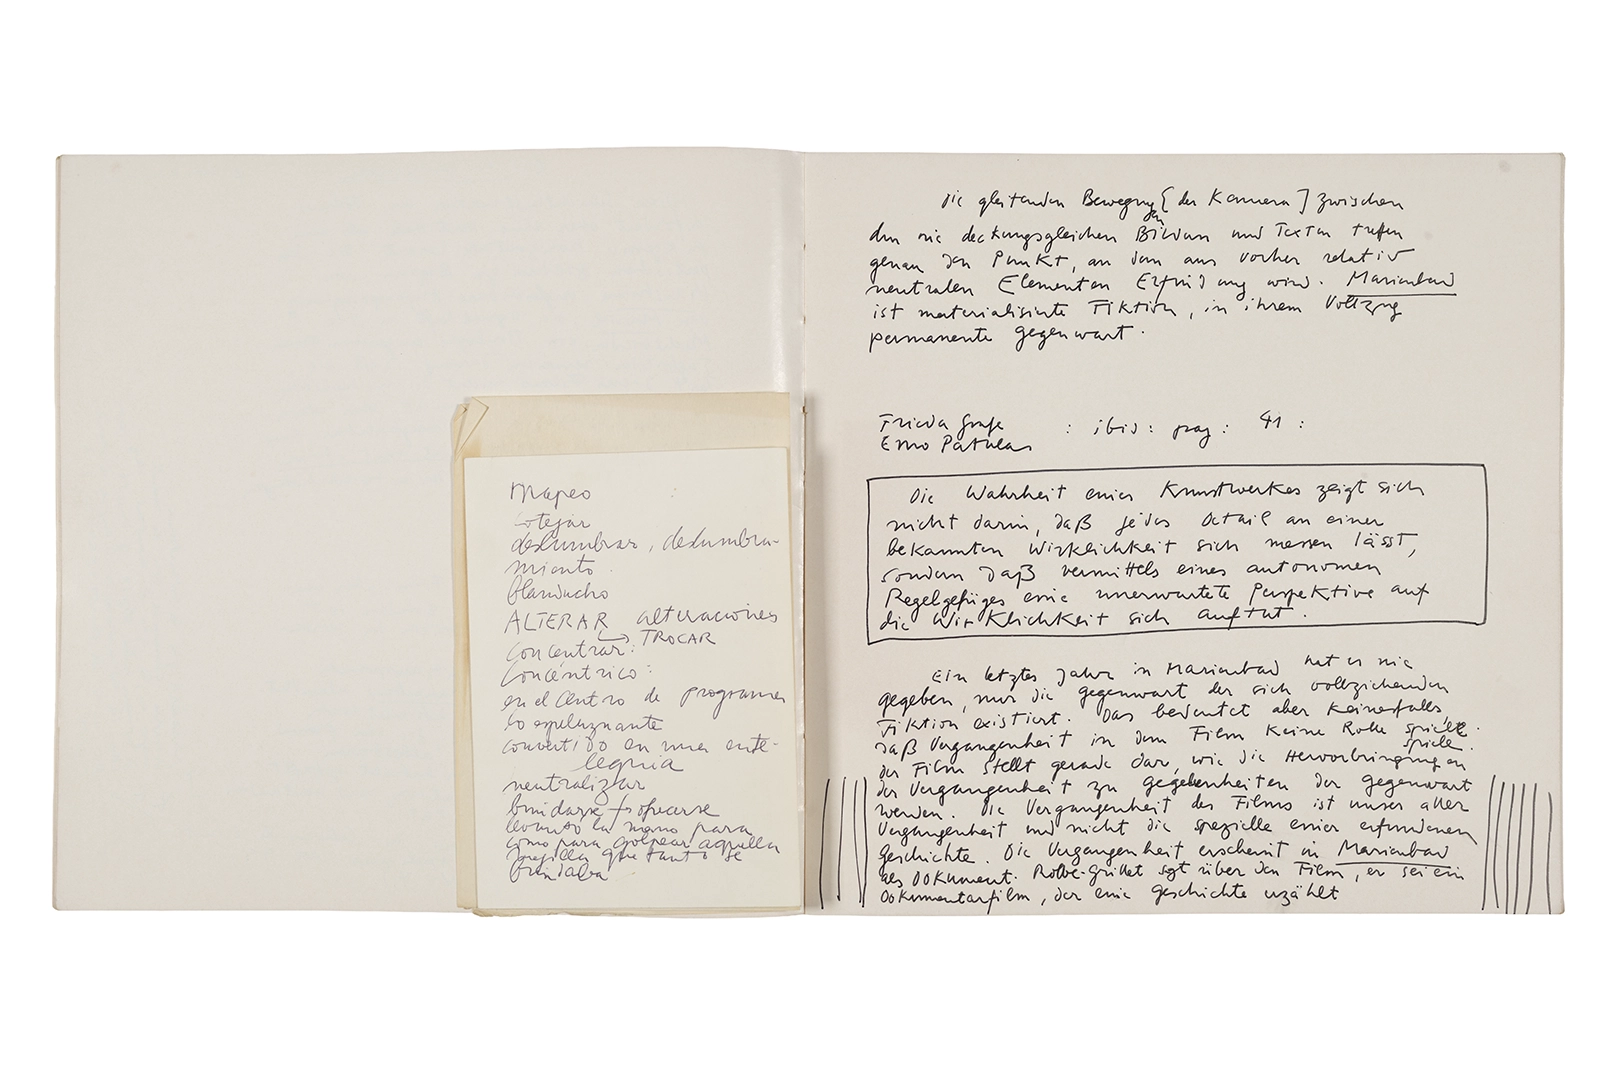 mapeo
cotejar
deslumbrar, deslumbra-
miento.
blanducho
ALTERAR alteraciones
↳ TROCAR
concentrar:
concéntrico:
en el centro de programa
lo espeluznante
convertido en una ente-
lequia
neutralizar
brindarse / ofrecerse
levantó la mano para
como para golpear aquella
mejilla que tanto se
brindaba
Die gleitenden Bewegungen [der Kamera] zwischen
den nie deckungsgleichen Bildern und Texten treffen
genau den Punkt, an dem aus vorher relativ
neutralen Elementen Erfindung wird. Marienbad
ist materialisierte Fiktion, in ihrem Vollzug
permanente Gegenwart.
Frieda Grafe
Enno Patalas
: ibid: pag: 41:
Die Wahrheit eines Kunstwerkes zeigt sich
nicht darin, daß jedes Detail an einer
bekannten Wirklichkeit sich messen lässt,
sondern daß vermittels eines autonomen
Regelgefüges eine unerwartete Perspektive auf
die Wirklichkeit sich auftut.
Ein letztes Jahr in Marienbad hat es nie
gegeben, nur die Gegenwart der sich vollziehenden
Fiktion existiert. Das bedeutet aber keinesfalls,
daß Vergangenheit in dem Film keine Rolle spielte.
spiele.
der Film stellt gerade dar, wie die Hervorbringungen
der Vergangenheit zu Gegebenheiten der Gegenwart
werden. Die Vergangenheit des Films ist unser aller
Vergangenheit und nicht die spezielle einer erfundenen
Geschichte. Die Vergangenheit erscheint in Marienbad
als Dokument. Robbe-Grillet sagt über den Film, er sei ein
Dokumentarfilm, der eine Geschichte erzählt